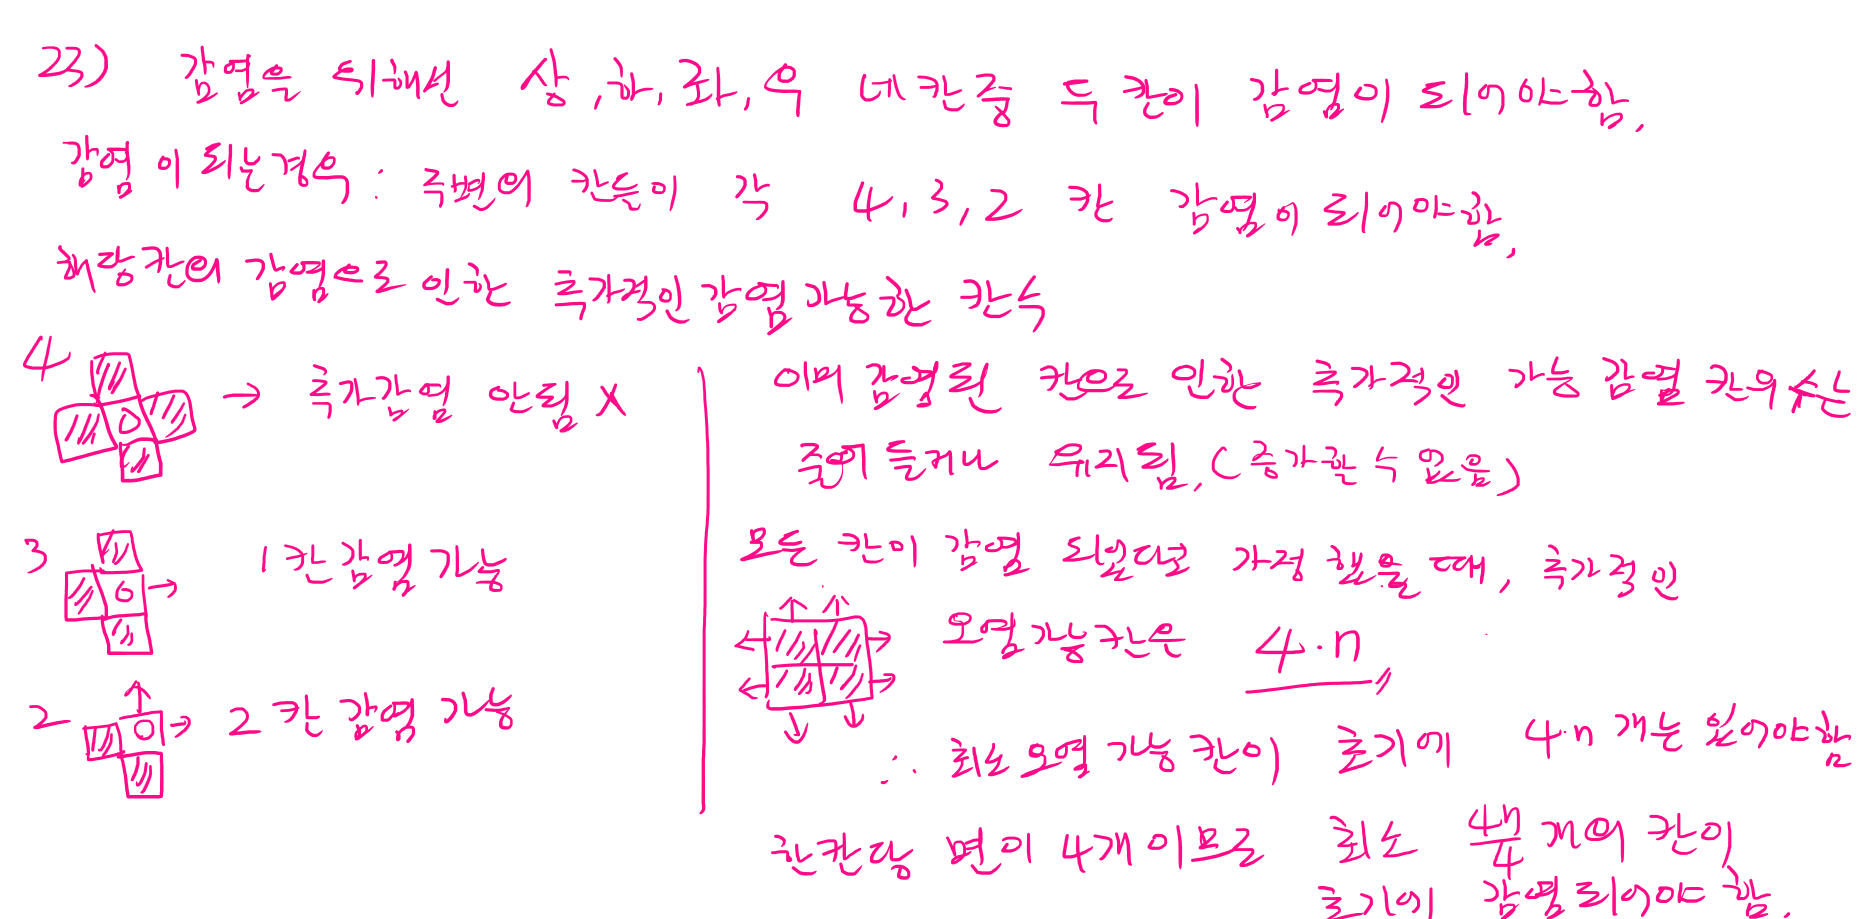 23) 감염을 위해선 상,하,좌,우 네칸중 두 칸이 감염이 되어야함.
감염이 되는경우 : 주변의 칸들이 각 4, 3, 2 칸 감염이 되어야함.
해당칸의 감염으로 인한 추가적인 감염 가능한 칸수
4 → 추가감염 안됨 X
3 1칸 감염 가능
2 2칸 감염 가능
이미 감염된 칸으로 인한 추가적인 가능 감염 칸의 수는
줄어 들거나 유지됨. (증가할 수 없음)
모든 칸이 감염 되었다고 가정 했을 때, 추가적인
오염가능칸은 4·n
∴ 최소 오염 가능 칸이 초기에 4·n 개는 있어야함
한칸당 면이 4개 이므로 최소 4n/4 개의 칸이
초기에 감염되어야 함.